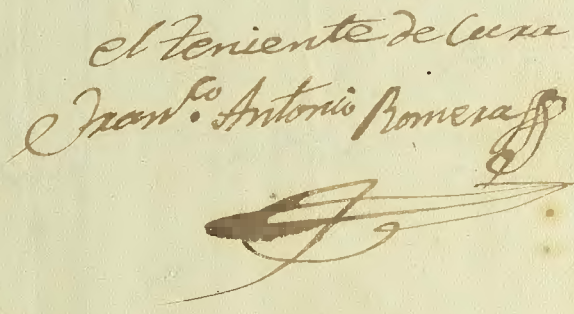 el teniente de Cura
Franco. Antonio Romera